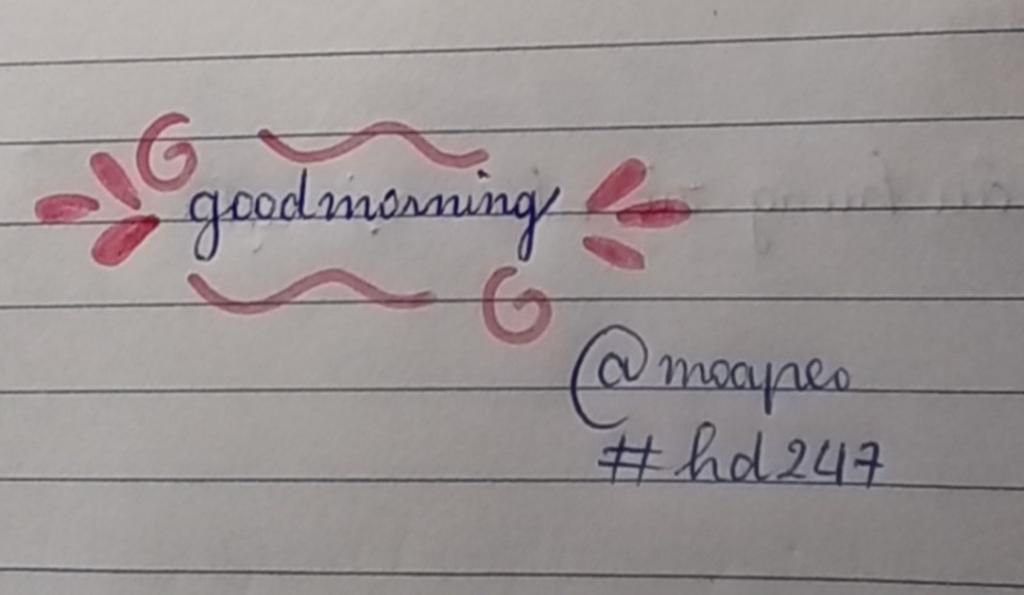 goodmorning
@moapeo
#hd247